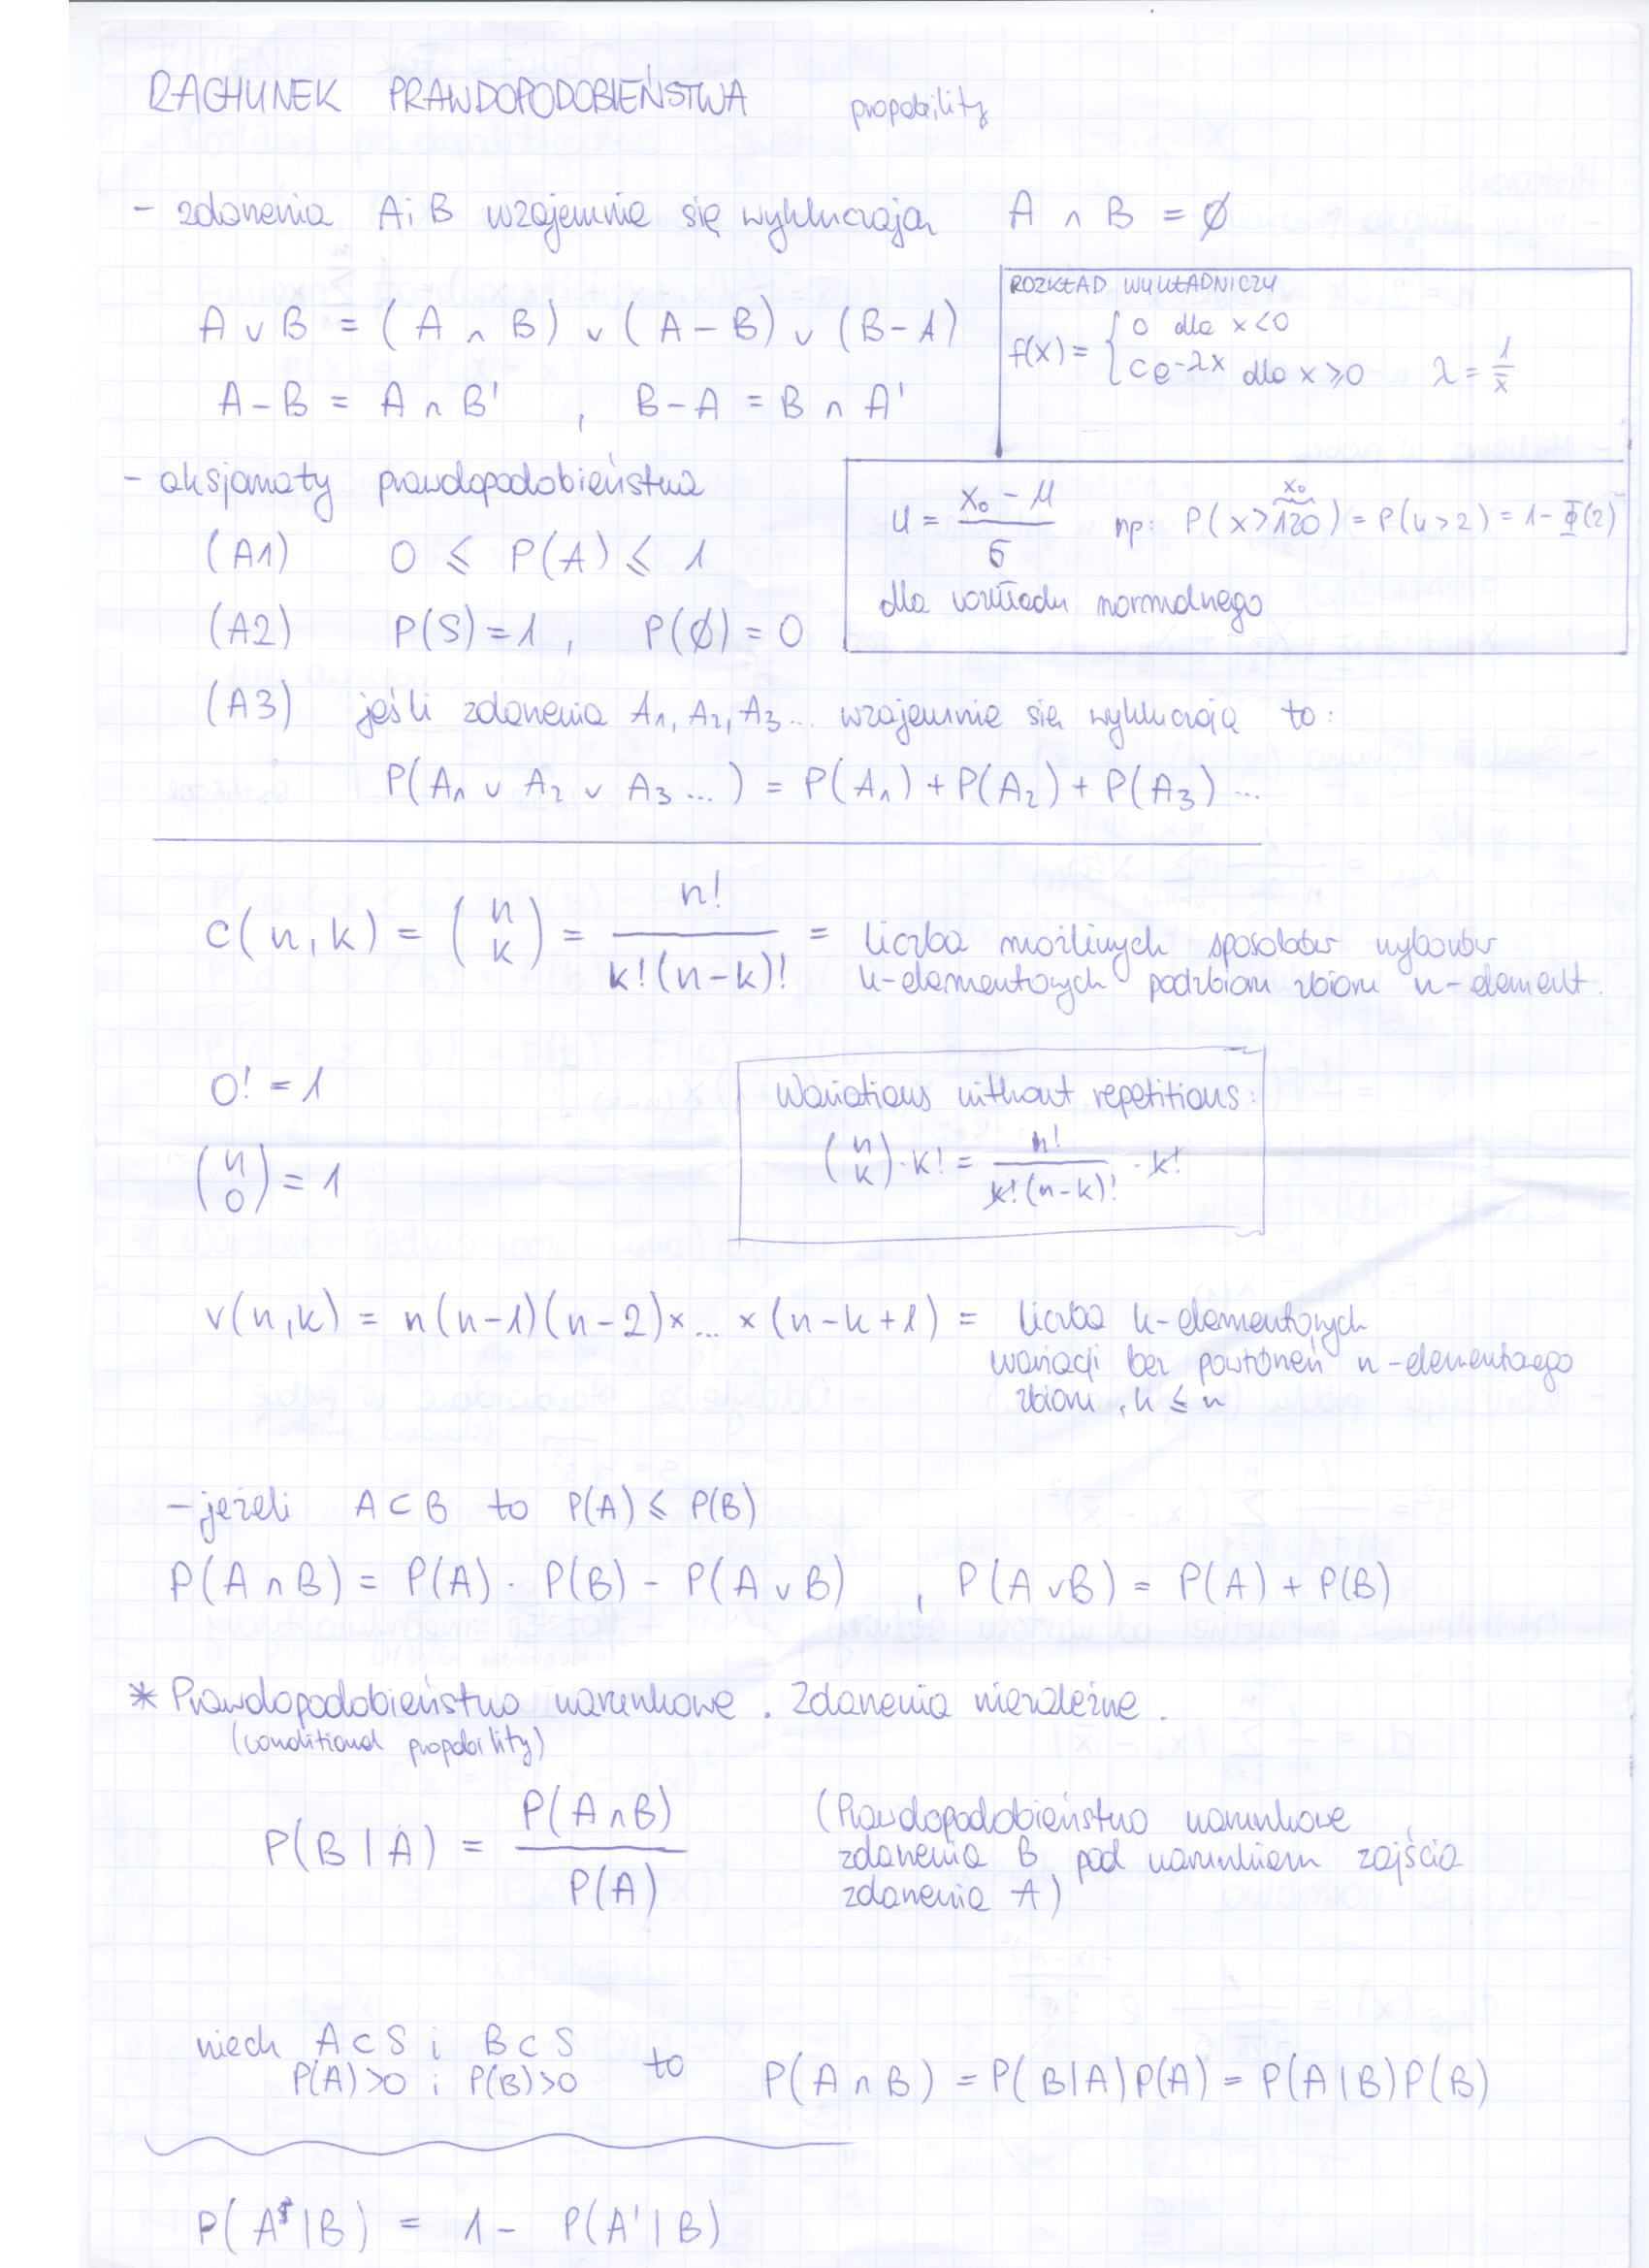 RACHUNEK PRAWDOPODOBIEŃSTWA propobility
- zdarzenia A i B wzajemnie się wykluczają A ∩ B = ∅
A ∪ B = (A ∩ B) ∪ (A - B) ∪ (B - A)
A - B = A ∩ B' , B - A = B ∩ A'
ROZKŁAD WYKŁADNICZY
f(x) = { 0 dla x < 0
Ce^-λx dla x ≥ 0 λ = 1/x̄
- aksjomaty prawdopodobieństwa
(A1) 0 ≤ P(A) ≤ 1
(A2) P(S) = 1 , P(∅) = 0
u = (x₀ - μ)/σ np: P(x > 120) = P(u > 2) = 1 - Φ(2)
x₀
dla rozkładu normalnego
(A3) jeśli zdarzenia A₁, A₂, A₃... wzajemnie się wykluczają to:
P(A₁ ∪ A₂ ∪ A₃ ...) = P(A₁) + P(A₂) + P(A₃) ...
C(n,k) = (n k) = n!/(k!(n-k)!) = liczba możliwych sposobów wyborów
k-elementowych podzbioru zbioru n-element.
0! = 1
(n 0) = 1
Wariations without repetitions:
(n k) · k! = n!/(k!(n-k)!) · k!
V(n,k) = n(n-1)(n-2)×...×(n-k+1) = liczba k-elementowych
wariacji bez powtórzeń n-elementowego
zbioru, k ≤ n
- jeżeli A ⊂ B to P(A) ≤ P(B)
P(A ∩ B) = P(A) · P(B) - P(A ∪ B) , P(A ∪ B) = P(A) + P(B)
* Prawdopodobieństwo warunkowe. Zdarzenia niezależne.
(conditional propobility)
P(B|A) = P(A ∩ B)/P(A)
(Prawdopodobieństwo warunkowe
zdarzenia B pod warunkiem zajścia
zdarzenia A)
niech A ⊂ S i B ⊂ S
P(A) > 0 i P(B) > 0 to P(A ∩ B) = P(B|A)P(A) = P(A|B)P(B)
P(A|B) = 1 - P(A'|B)